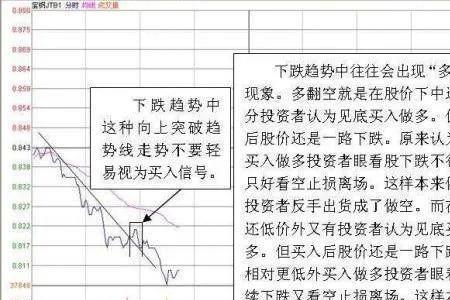 宝钢JTB1 分时 均线 成交量
0.890
0.875
0.869
0.863
0.854
0.847
0.841
0.832
0.826
0.820
0.811
0.805
37848
下跌趋势中
这种向上突破趋
势线走势不要轻
易视为买入信号。
下跌趋势中往往会出现“多
现象。多翻空就是在股价下中
分投资者认为见底买入做多。但
后股价还是一路下跌。原来认
买入做多投资者眼看股下跌不
只好看空止损离场。这样本来
投资者反手出货成了做空。而
还低价外又有投资者认为见底
多。但买入后股价还是一路下
相对更低外买入做多投资者眼
续下跌又看空止损离场。这样